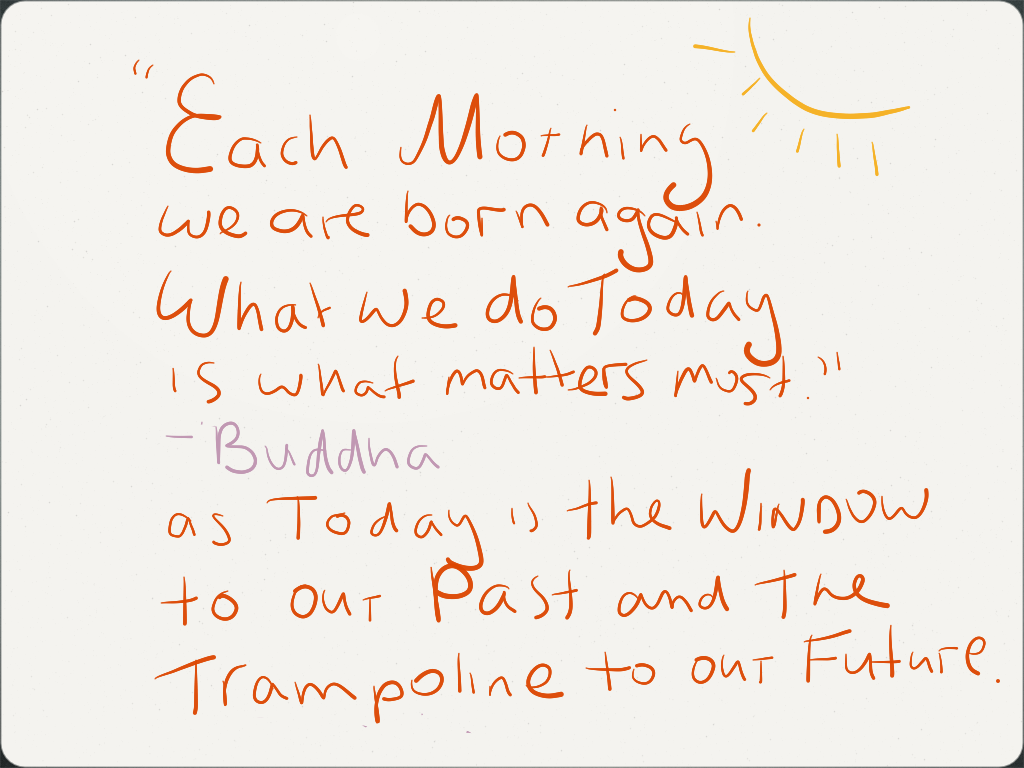 "Each Morning
we are born again.
What we do Today
is what matters most."
- Buddha
as Today is the WINDOW
to our Past and The
Trampoline to our Future.